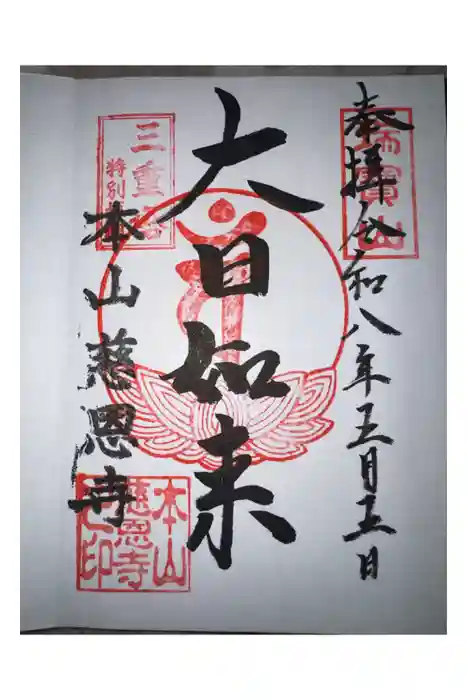 瑞寶山
奉拝令和八年五月五日
大日如来
三重塔
特別
本山慈恩寺
本山
慈恩寺
之印